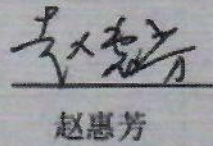 赵惠芳
赵惠芳